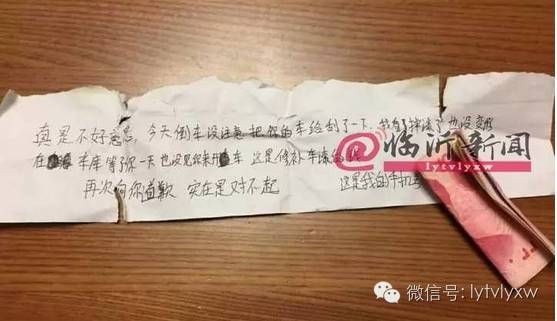 真是不好意思,今天倒车没注意把你的车给刮了一下,我看了掉漆了也没变形
在车库等了你一天也没见你来开车 这是修补车漆的
再次向你道歉 实在是对不起 这是我的手机
@临沂新闻
lytvlyxw
微信号: lytvlyxw